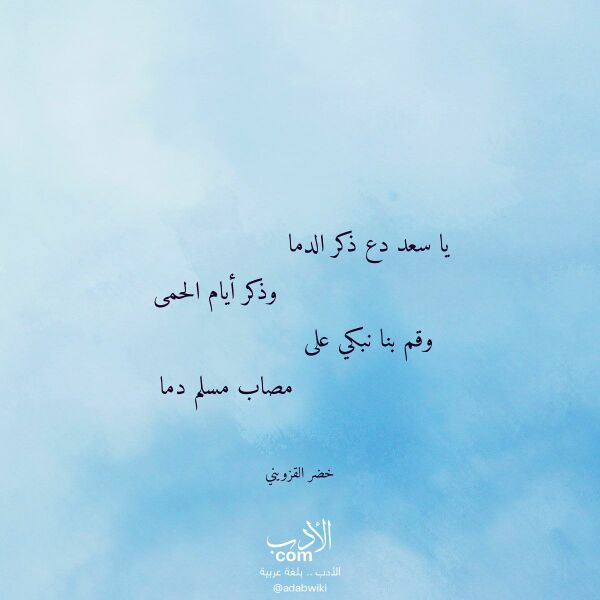 يا سعد دع ذكر الدما
وذكر أيام الحمى
وقم بنا نبكي على
مصاب مسلم دما
خضر القزويني
الأدب
com
الأدب .. بلغة عربية
@adabwiki